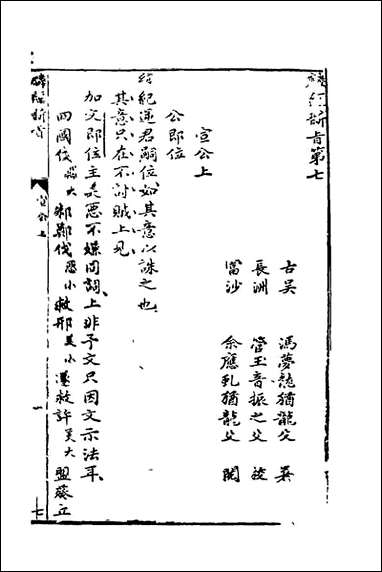 麟經指月第七
古吳　馮夢龍猶龍父
長洲　管玉音振之父
富沙　余應虬猶龍父　閱
宣公上
公即位
經紀逆君嗣位如其意以誅之也
其意只在不討賊上見
加父即位主美惡不嫌同詞上非予文只因文示法耳
四國伐 大 鄭伐 惡小 救邢 美小 遂救許 美大 盟葵丘
宣公上
一
七